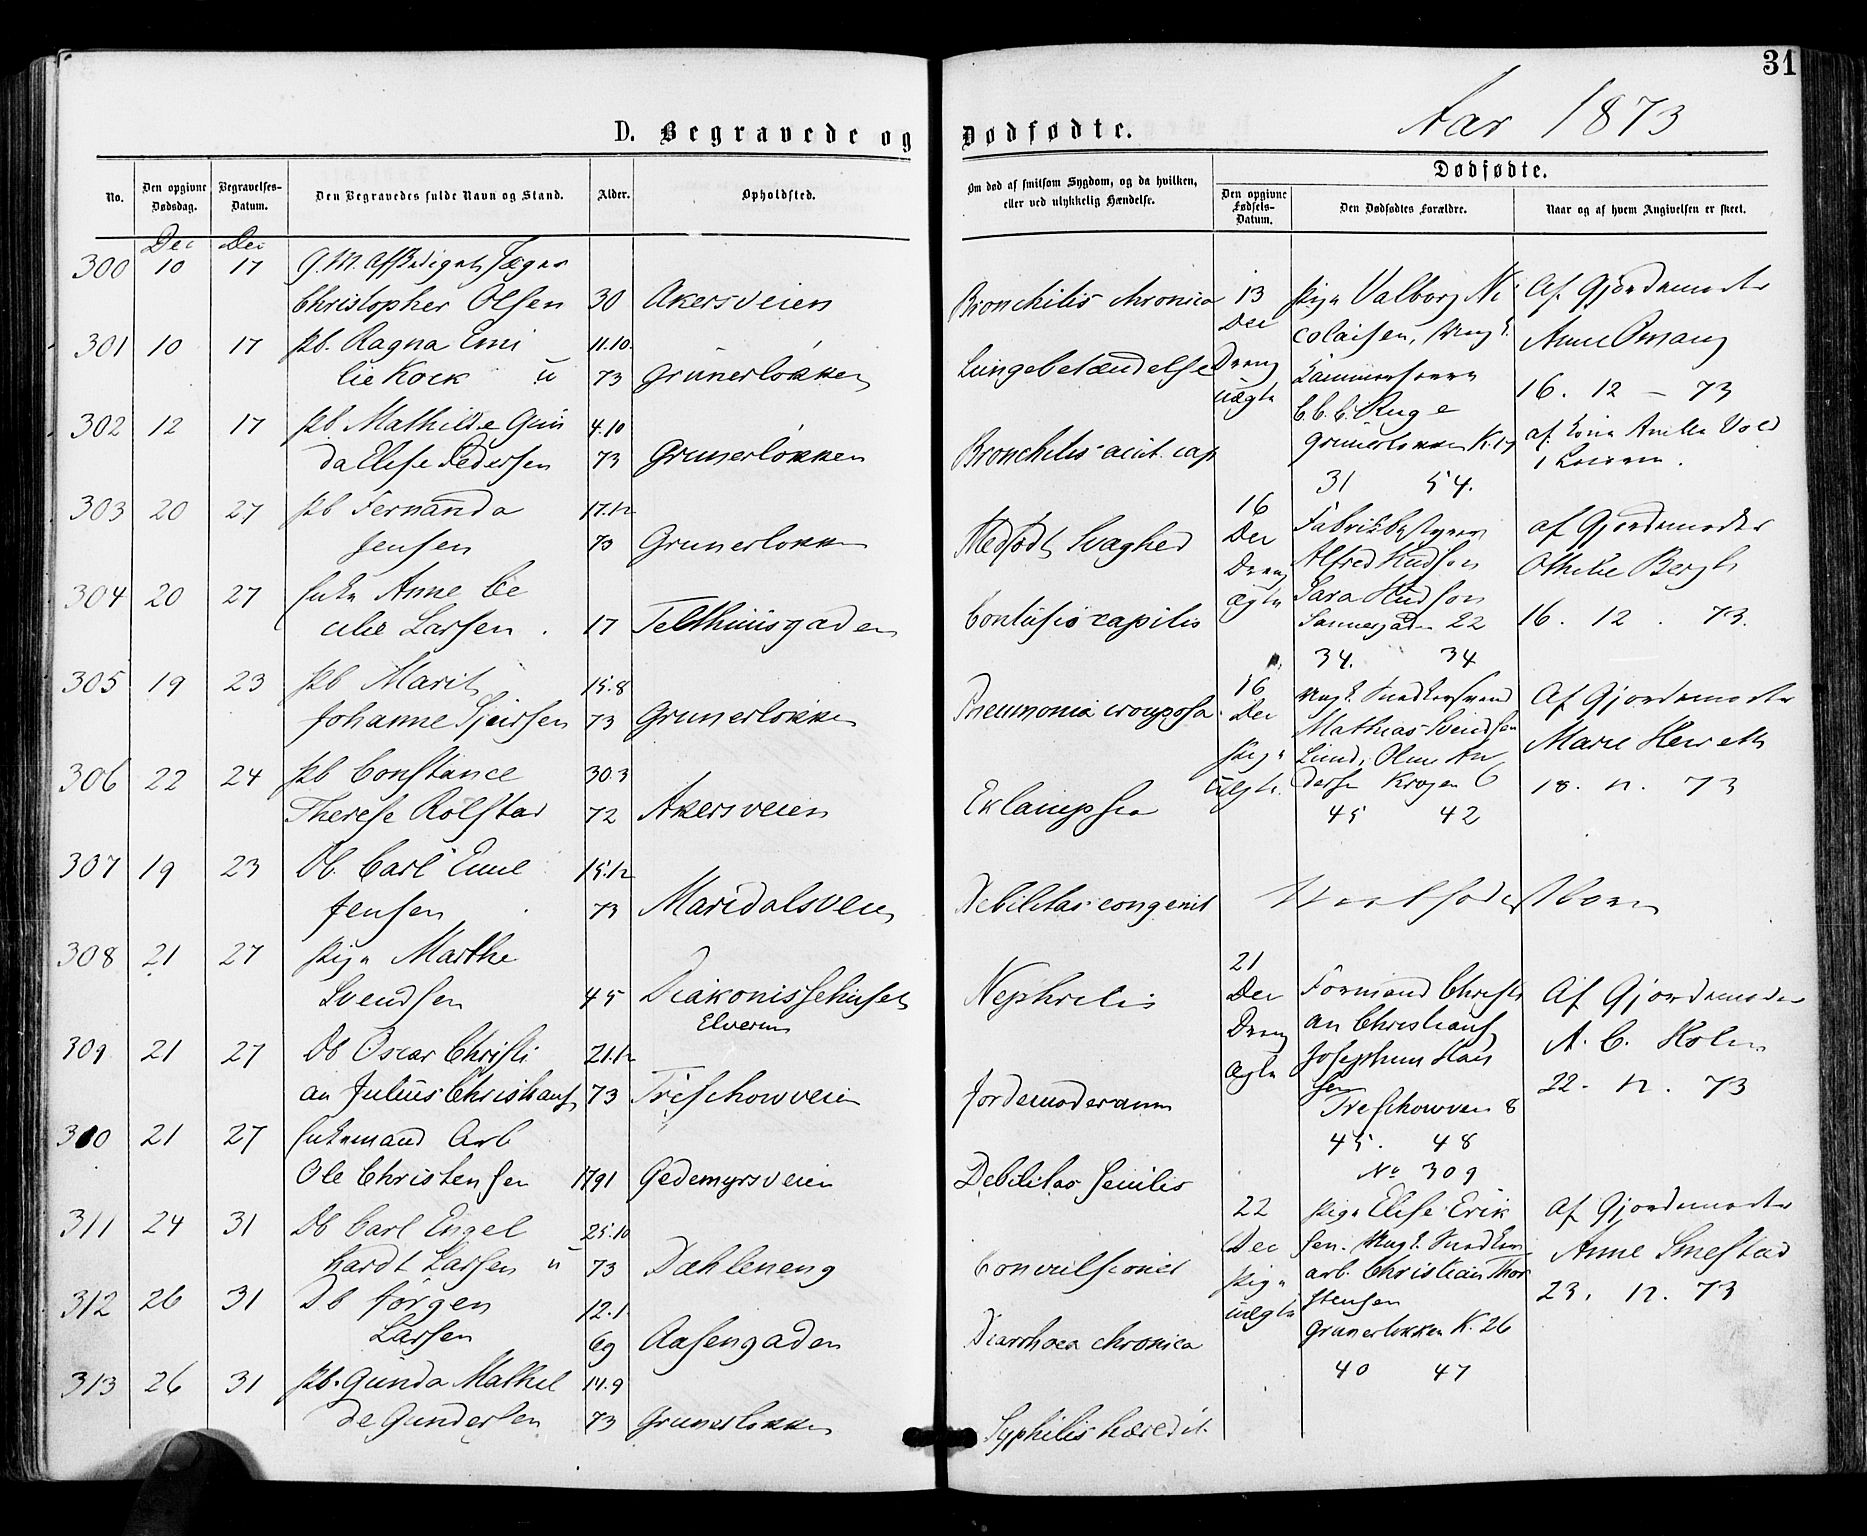 31
Aar 1873
D. Begravede og Dødfødte.
No.
Den opgivne Dødsdag.
Begravelses-Datum.
Den Begravedes fulde Navn og Stand.
Alder.
Opholdsted.
Om død af smitsom Sygdom, og da hvilken, eller ved ulykkelig Hændelse.
Dødfødte.
Den opgivne Fødsels-Datum.
Den Dødfødtes Forældre.
Naar og af hvem Angivelsen er skeet.
Dec Dec
300 10 17 G. M.
Christopher Olsen 30 Akersveien Bronchitis chronica
301 10 17 Pb. Ragna Emi 11.10.
lie Kock u 73 Grünerløkken Lungebetændelse
302 12 17 Pb Mathilde Gun 4.10
da Elise Pedersen 73 Grunerløkken Bronchitis acut. cap
303 20 27 Pb Fernanda 17.12
Jensen 73 Grunerløkken Medfødt Svaghed
304 20 27 Enke Anne Ce
cilie Larsen. 17 Telthuusgaden Contusio capitis
305 19 23 Pb Marit 15.8
Johanne 73 Grunerløkken Pneumonia crouposa
306 22 24 Pb Constance 30.3
Therese Rolstad 72 Akersveien Eklampsia
307 19 23 Db. Carl Emil 15.12
Jensen 73 Maridalsveien Debilitas congenit
308 21 27 Pige Marthe
Svendsen 45 Diakonissehuset Nephritis
Elverum
309 21 27 Db Oscar Christi 21.12
an Julius Christians 73 Treschowveien
310 21 27 Enkemand Arb
Ole Christensen 1791 Gedemyrsveien Debilitas senilis
311 24 31 Db Carl Engel 25.10
hardt Larsen u 73 Dæhleneng Convulsioner
312 26 31 Db Jørgen 12.1
Larsen 69 Aasengaden Diarrhoea chronica
313 26 31 Pb. Gunda Mathil 14.9
de Gundersen 73 Grunerløkken Syphilis heredit.
13 Pige Valborg Ni Af Gjordemoder
Dec colaisen, Ung k. Anne Omang
Dreng 16. 12 – 73
uægte C. C. C. Ruge af
Grünerløkken K. 17
31 54.
16 Fabrikbestyrer af Gjordemoder
Dec Alfred Hudson Othilie Bergh
Dreng Sara Hudson
ægte Sannergaden 22 16. 12. 73.
34. 34
16 Ung k. Snedkersvend Af Gjordemoder
Dec Mathias Svendsen Marie
Pige Lund, An
uægte. dersen Krogen 6 18. 12. 73
45 42
21
Dec Formand Christi Af Gjordemoder
Dreng an Christians A. C. Holm
ægte Josephine Han
sen 22. 12. 73
Treschowvei 8
45. 48
No 309
22 Pige Elise Erik Af Gjordemoder
Dec sen. Ung k. Snedker Anne Smestad
Pige arb. Christian Thor
uægte stensen 23. 12. 73
Grunerløkken K. 26
40 47